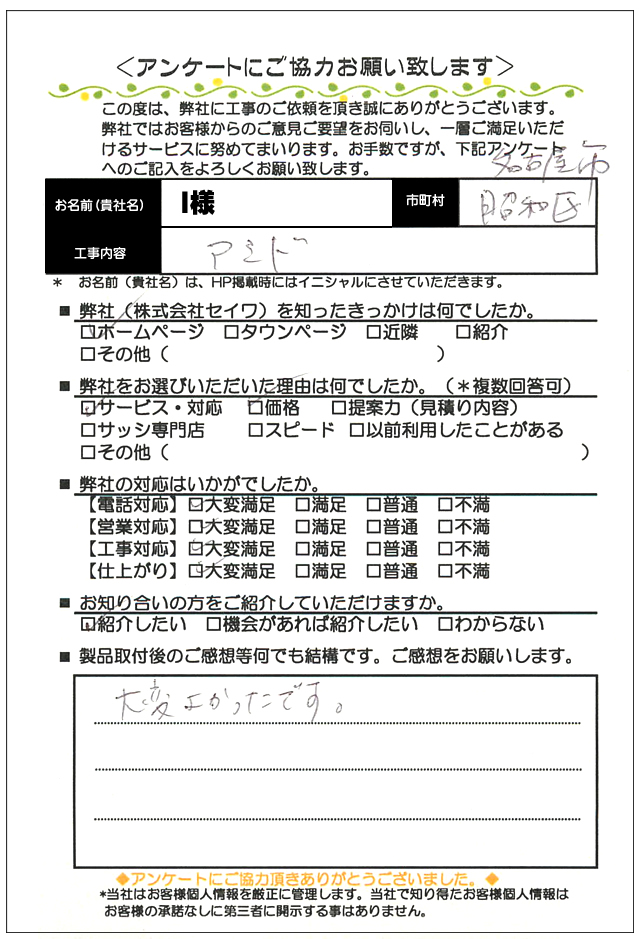 ＜アンケートにご協力お願い致します＞
この度は、弊社に工事のご依頼を頂き誠にありがとうございます。
弊社ではお客様からのご意見ご要望をお伺いし、一層ご満足いただ
けるサービスに努めてまいります。お手数ですが、下記アンケート
へのご記入をよろしくお願い致します。
名古屋市
お名前(貴社名) I様 市町村 昭和区
工事内容 アミド
* お名前（貴社名）は、HP掲載時にはイニシャルにさせていただきます。
■ 弊社（株式会社セイワ）を知ったきっかけは何でしたか。
☑ホームページ □タウンページ □近隣 □紹介
□その他（ ）
■ 弊社をお選びいただいた理由は何でしたか。（＊複数回答可）
☑サービス・対応 ☑価格 □提案力（見積り内容）
□サッシ専門店 □スピード □以前利用したことがある
□その他（ ）
■ 弊社の対応はいかがでしたか。
【電話対応】☑大変満足 □満足 □普通 □不満
【営業対応】☑大変満足 □満足 □普通 □不満
【工事対応】☑大変満足 □満足 □普通 □不満
【仕上がり】☑大変満足 □満足 □普通 □不満
■ お知り合いの方をご紹介していただけますか。
☑紹介したい □機会があれば紹介したい □わからない
■ 製品取付後のご感想等何でも結構です。ご感想をお願いします。
大変よかったです。
◆アンケートにご協力頂きありがとうございました。◆
*当社はお客様個人情報を厳正に管理します。当社で知り得たお客様個人情報は
お客様の承諾なしに第三者に開示する事はありません。